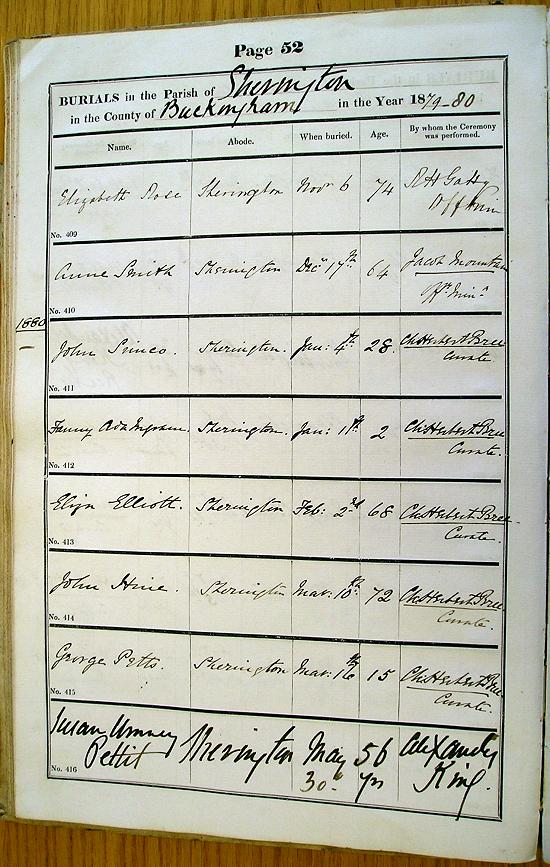 Page 52
BURIALS in the Parish of Sherington
in the County of Buckingham in the Year 1879-80
Name. Abode. When buried. Age. By whom the Ceremony was performed.
Elizabeth Rose Sherington Novr 6 74
Off Min
No. 409
Anne Smith Sherington Decr 17th 64 Jacob Mountain
Offg Minr
No. 410
1880
John Simco. Sherington. Jan: 4th 28. Ch: Herbert Bree
Curate
No. 411
Fanny Ada Ingram. Sherington. Jan: 11th 2 Ch: Herbert Bree
Curate.
No. 412
Eliza Elliott. Sherington Feb: 2nd 68 Ch: Herbert Bree
Curate.
No. 413
John Hine. Sherington Mar: 10th 72 Ch: Herbert Bree
Curate.
No. 414
George Petts. Sherington Mar: 16th 15 Ch: Herbert Bree
Curate.
No. 415
Susan Umney Sherington May 56 Alexander
Pettit 30. yrs King.
No. 416